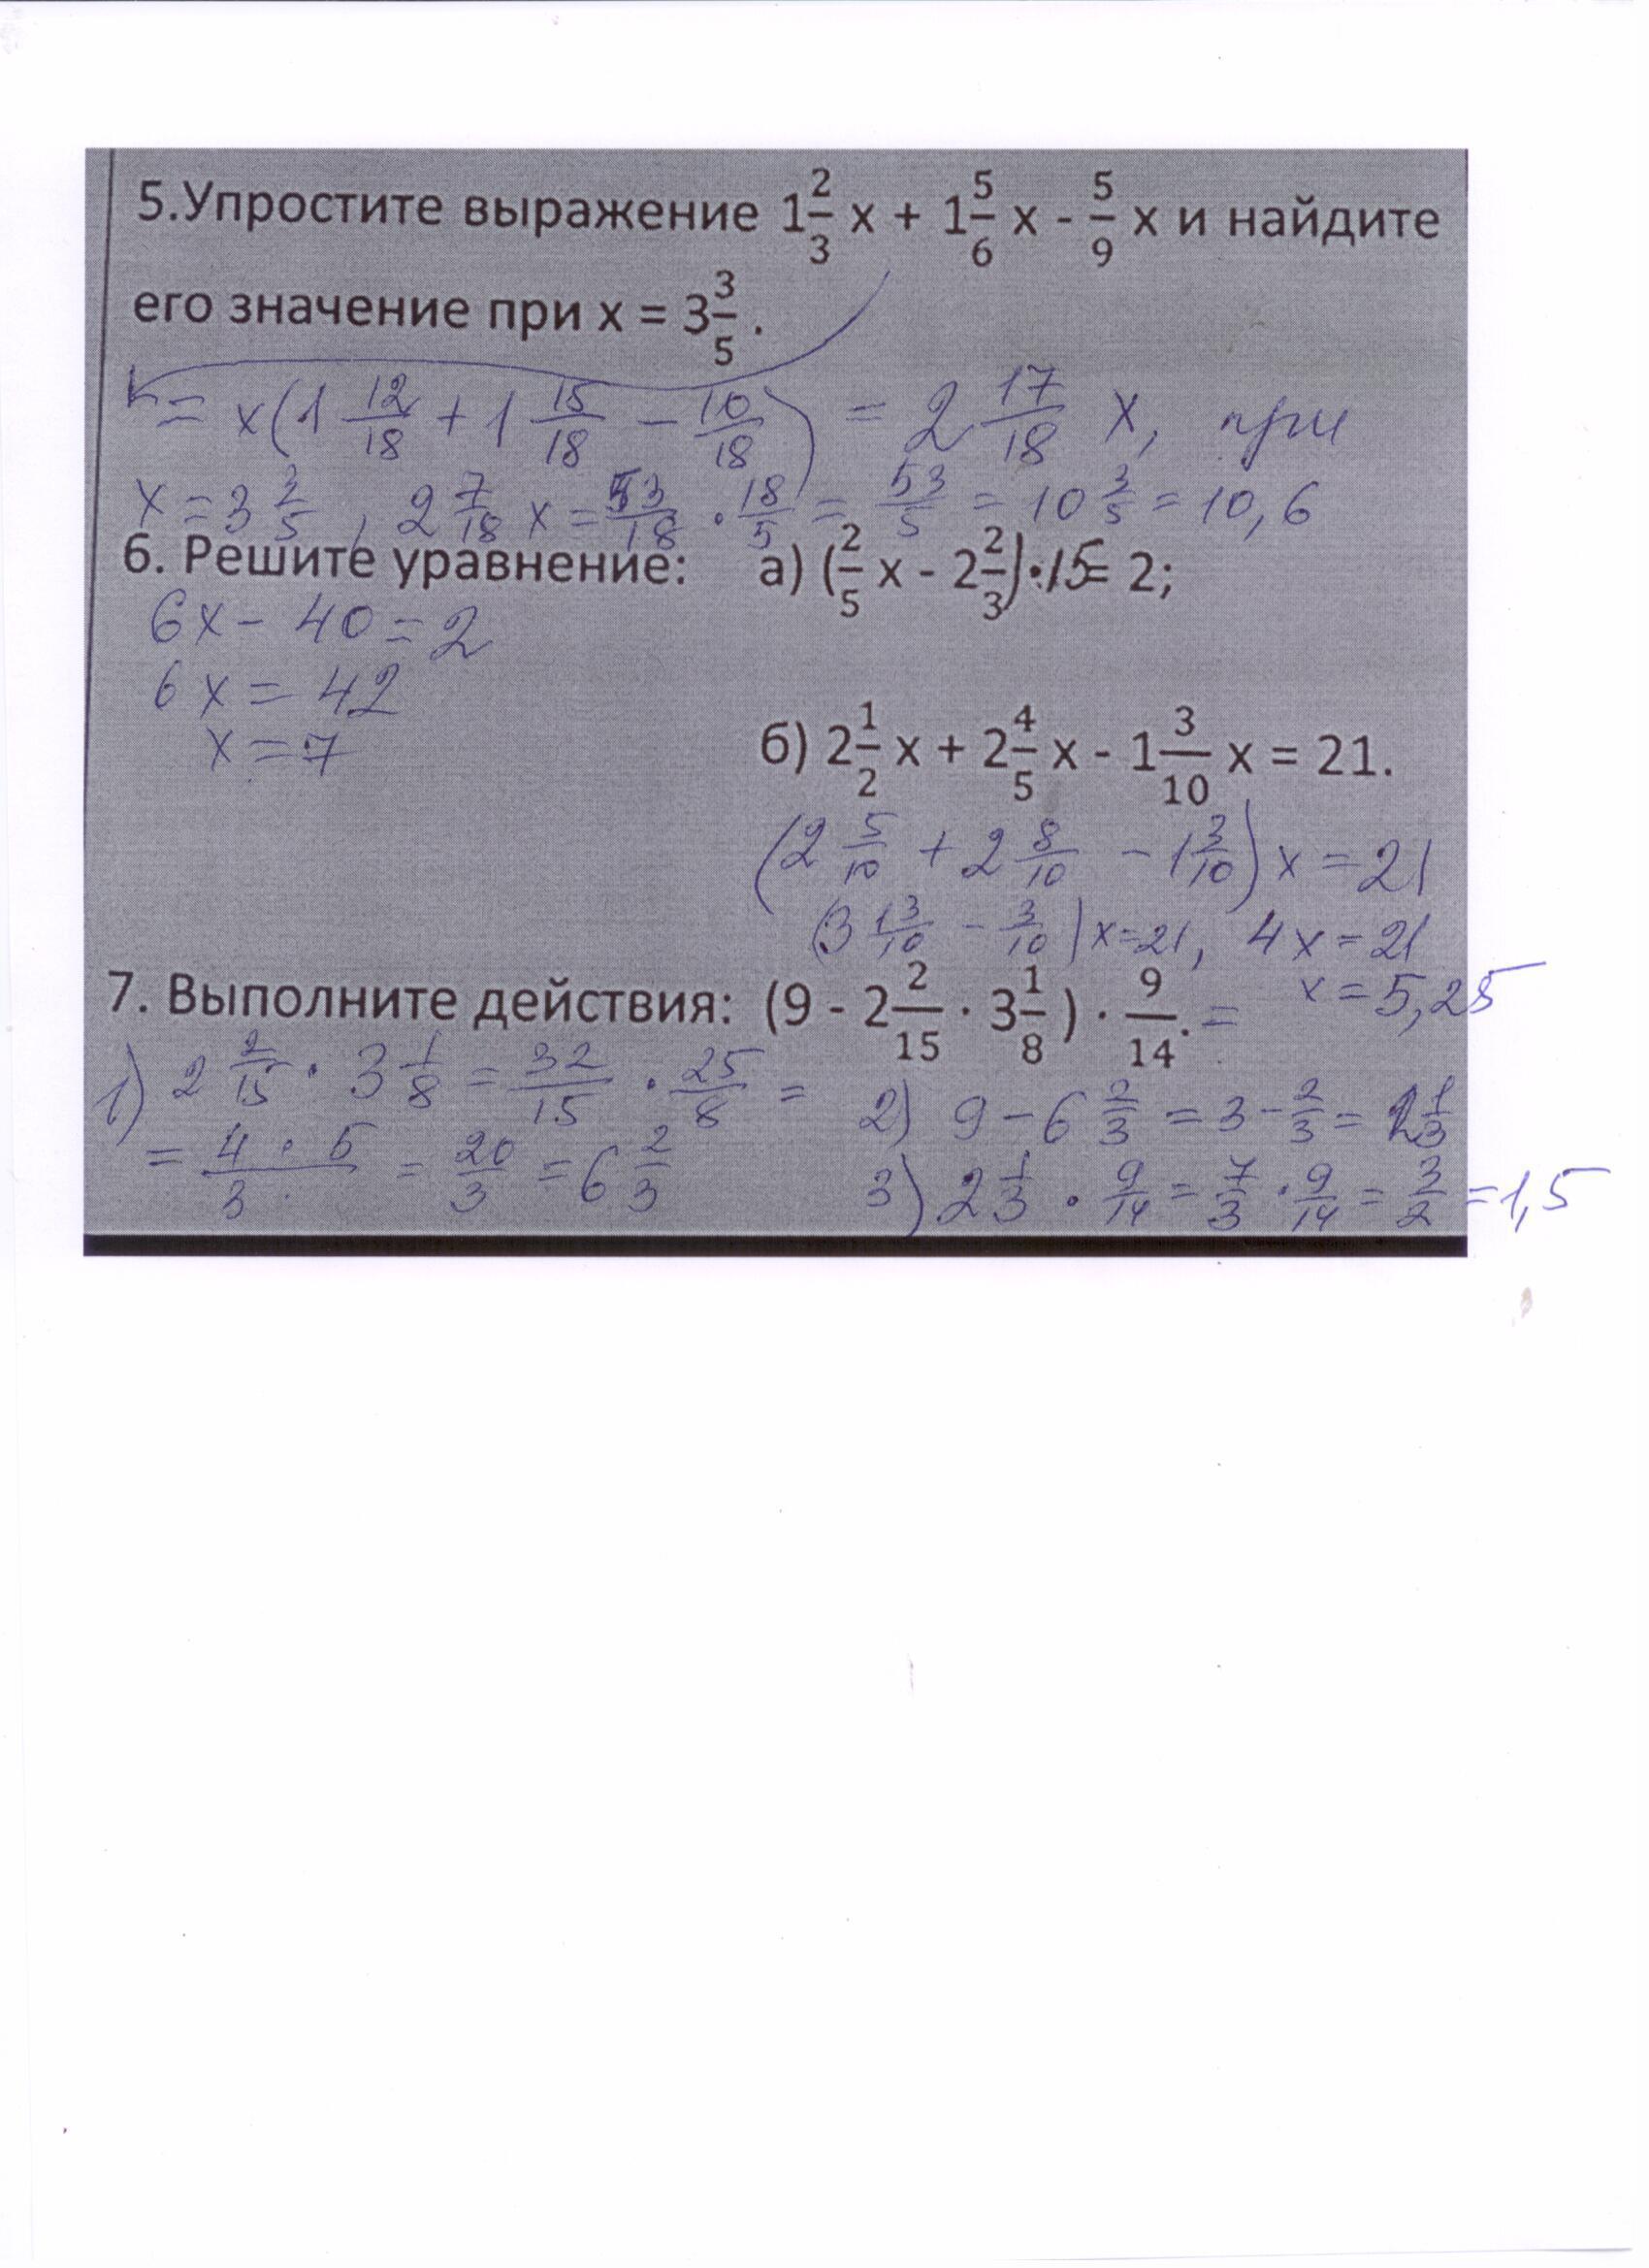 5.Упростите выражение 1 2/3 x + 1 5/6 x - 5/9 x и найдите
его значение при x = 3 3/5 .
= x(1 12/18 + 1 15/18 − 10/18) = 2 17/18 x, при
x = 3 3/5 , 2 7/18 x = 53/18 · 18/5 = 53/5 = 10 3/5 = 10,6
6. Решите уравнение: а) (2/5 x - 2 2/3)·15 = 2;
6x − 40 = 2
6x = 42
x = 7
б) 2 1/2 x + 2 4/5 x - 1 3/10 x = 21.
(2 5/10 + 2 8/10 − 1 3/10) x = 21
(3 13/10 − 3/10) x = 21, 4x = 21
x = 5,25
7. Выполните действия: (9 - 2 2/15 · 3 1/8 ) · 9/14. =
1) 2 2/15 · 3 1/8 = 32/15 · 25/8 =
= 4 · 5/3 = 20/3 = 6 2/3
2) 9 − 6 2/3 = 3 − 2/3 = 2 1/3
3) 2 1/3 · 9/14 = 7/3 · 9/14 = 3/2 = 1,5